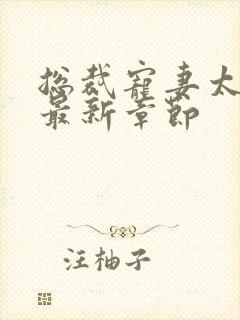 总裁宠妻太
最新章节
汪柚子